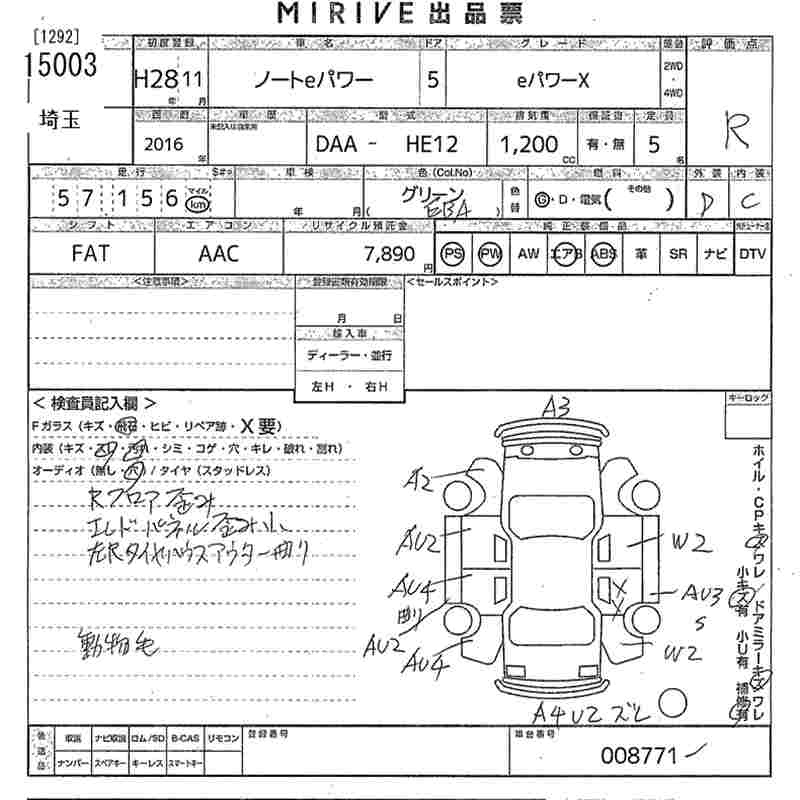 MIRIVE 出品票
[1292]
15003
埼玉
初度登録 車名 ドア グレード 駆動 評価点
H28 11 ノートeパワー 5 eパワーX 2WD・4WD R
年 月
車歴 型式 排気量 保証書 定員
2016年 DAA - HE12 1,200 CC 有・無 5 名
走行 車検 色(Col.No) 色替 燃料 外装 内装
57,156 マイル km 年 月 グリーン ( EBA ) G・D・電気 ( その他 ) D C
シフト エアコン リサイクル預託金 純正装備品
FAT AAC 7,890 円 PS PW AW エアB ABS 革 SR ナビ DTV
<注意事項> 登録書類有効期限 <セールスポイント>
月 日
輸入車
ディーラー・並行
左H ・ 右H
< 検査員記入欄 > キーロック
Fガラス (キズ・飛石・ヒビ・リペア跡・X要)
内装 (キズ・スレ・汚れ・シミ・コゲ・穴・キレ・破れ・割れ)
オーディオ (無し・穴) / タイヤ (スタッドレス)
Rフロア歪み
エンドパネル歪み小
左Rタイヤハウスアウター曲り
動物毛
A3
A2
AU2
W2
AU4
曲り
AU3
S
AU2
AU4
W2
A4U2 ズレ
ホイル・CPキズワレ/ドアミラーキズワレ
小キズ有 小U有 補修有
後送品 取説 ナビ取説 ロム/SD B-CAS リモコン 登録番号 車台番号
ナンバー スペアキー キーレス スマートキー 008771